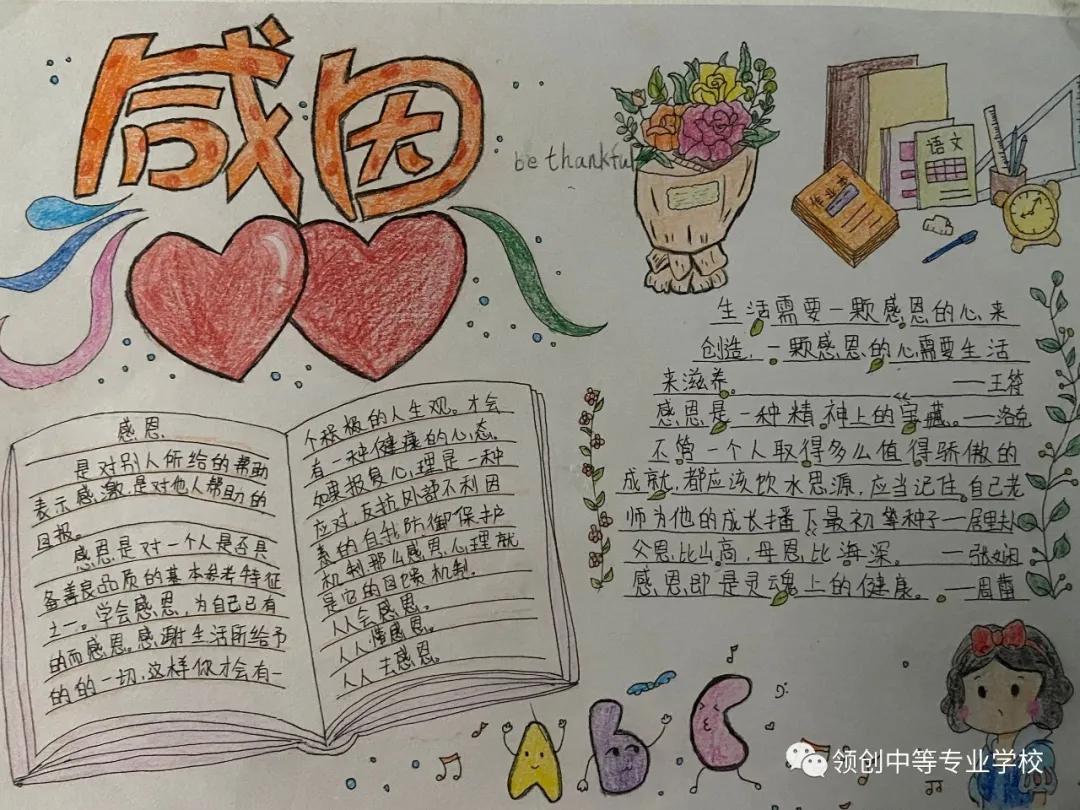 感恩
be thankful
语文
作业本
生活需要一颗感恩的心来
创造,一颗感恩的心需要生活
来滋养。——王符
感恩是一种精神上的宝藏。——洛克
不管一个人取得多么值得骄傲的
成就,都应该饮水思源,应当记住自己老
师为他的成长播下最初
种子——居里夫
父恩比山高,母恩比海深。——张
感恩即是灵魂上的健康。——周
感恩
是对别人所给的帮助
表示感激,是对他人帮助的
回报。
感恩是对一个人是否具
备善良品质的基本参考特征
之一。学会感恩,为自己已有
的而感恩。感谢生活所给予
的的一切,这样你才会有一
个积极的人生观。才会
有一种健康的心态。
如果报复心理是一种
应对,反抗风部不利因
素的自我防御保护
机制那么感恩心理就
是它的回馈机制.
人人会感恩。
人人懂感恩。
人人去感恩。
A b C
领创中等专业学校